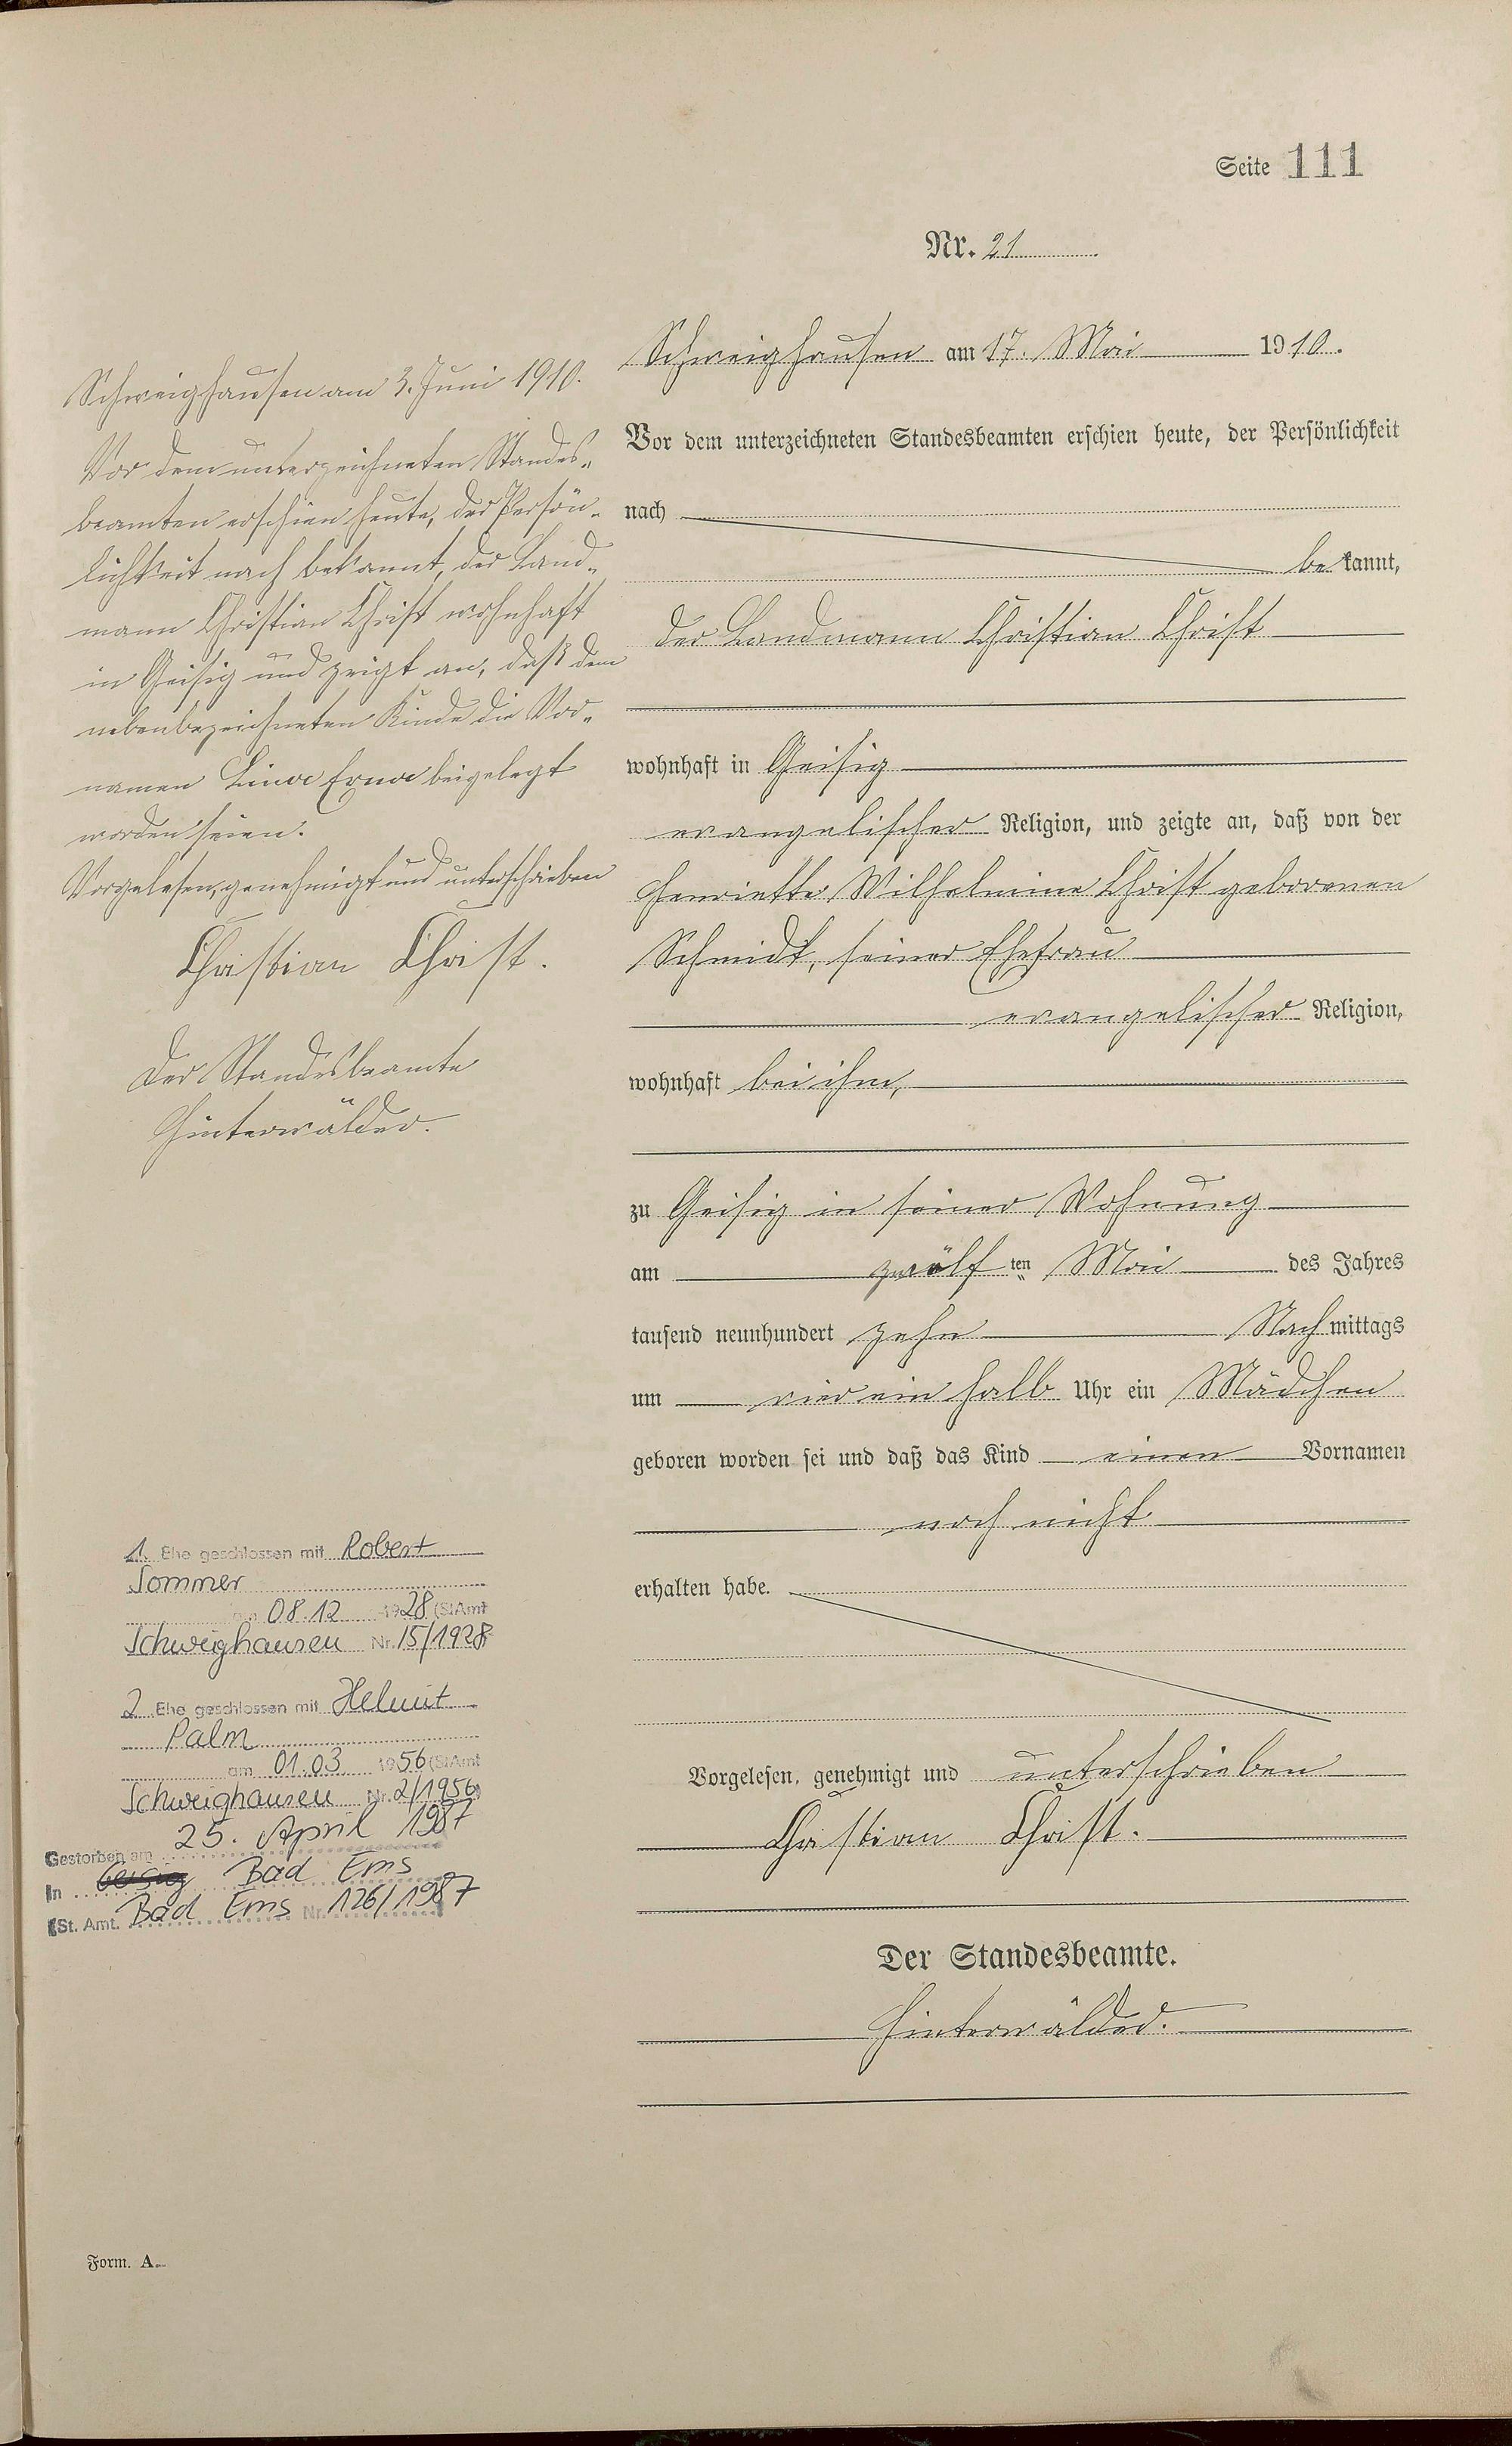 Seite 111
Nr. 21
Schweighausen am 17. Mai 1910.
Vor dem unterzeichneten Standesbeamten erschien heute, der Persönlichkeit
nach
bekannt,
der Landmann Christian Christ
wohnhaft in Geisig
evangelischer Religion, und zeigte an, daß von der
Henriette Wilhelmine Christ geborenen
Schmidt, seiner Ehefrau
evangelischer Religion,
wohnhaft bei ihm,
zu Geisig in seiner Wohnung
am zwölften Mai des Jahres
tausend neunhundert zehn Nachmittags
um vier ein halb Uhr ein Mädchen
geboren worden sei und daß das Kind einen Vornamen
noch nicht
erhalten habe.
Vorgelesen, genehmigt und unterschrieben
Christian Christ.
Der Standesbeamte.
Hinterwälder.
Schweighausen am 3. Juni 1910.
Vor dem unterzeichneten Standes-
beamten erschien heute, der Persön-
lichkeit nach bekannt, der Land-
mann Christian Christ wohnhaft
in Geisig und zeigt an, daß dem
nebenbezeichneten Kinde die Vor-
namen Lina Erna beigelegt
worden seien.
Vorgelesen, genehmigt und unterschrieben
Christian Christ.
Der Standesbeamte
Hinterwälder.
1. Ehe geschlossen mit Robert
Sommer
am 08.12 1928 (StAmt
Schweighausen Nr. 15/1928
2 Ehe geschlossen mit Helmut
Palm
am 01.03 1956 (StAmt
Schweighausen Nr. 2/1956)
Gestorben am 25. April 1987
In Geisig Bad Ems
(St. Amt. Bad Ems Nr. 126/1987
Form. A.